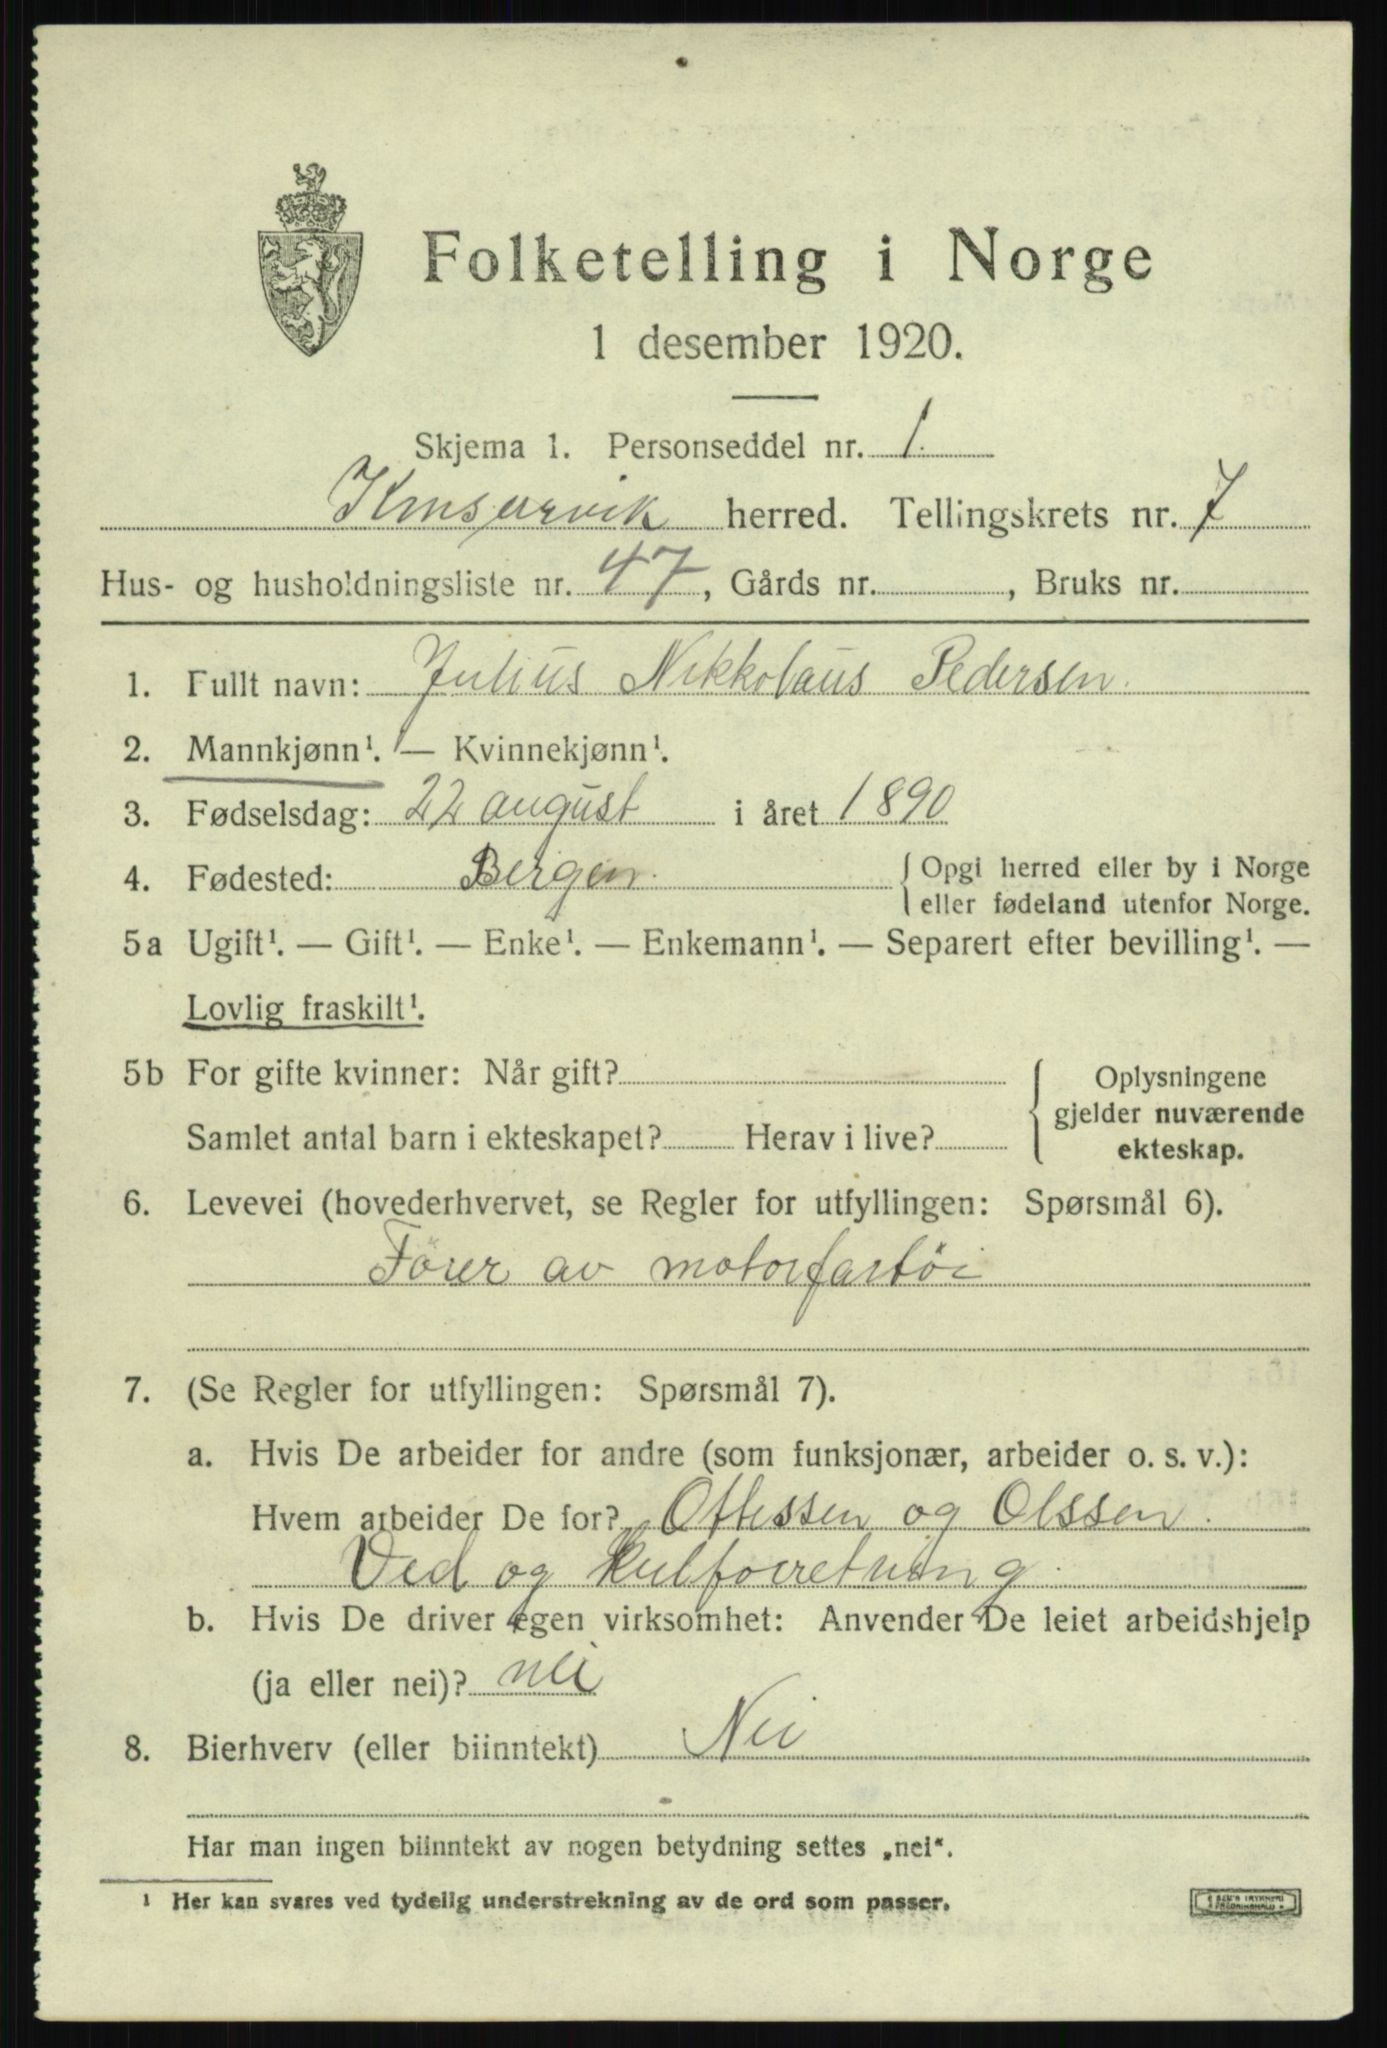 Folketelling i Norge
1 desember 1920.
Skjema 1. Personseddel nr. 1.
Kinservik herred. Tellingskrets nr. 7
Hus- og husholdningsliste nr. 47, Gårds nr. , Bruks nr.
1. Fullt navn: Julius Nikkolaus Pedersen.
2. Mannkjønn¹. — Kvinnekjønn¹.
3. Fødselsdag: 22 august i året 1890
4. Fødested: Bergen. { Opgi herred eller by i Norge
eller fødeland utenfor Norge.
5a Ugift¹. — Gift¹. — Enke¹. — Enkemann¹. — Separert efter bevilling¹. —
Lovlig fraskilt¹.
5b For gifte kvinner: Når gift? { Oplysningene
gjelder nuværende
Samlet antal barn i ekteskapet? Herav i live?
ekteskap.
6. Levevei (hovederhvervet, se Regler for utfyllingen: Spørsmål 6).
Förer av motorfartöi
7. (Se Regler for utfyllingen: Spørsmål 7).
a. Hvis De arbeider for andre (som funksjonær, arbeider o. s. v.):
Hvem arbeider De for? Ottessen og Olssen.
Ved og kulforretning.
b. Hvis De driver egen virksomhet: Anvender De leiet arbeidshjelp
(ja eller nei)? nei
8. Bierhverv (eller biinntekt) Nei
Har man ingen biinntekt av nogen betydning settes „nei“.
¹ Her kan svares ved tydelig understrekning av de ord som passer.